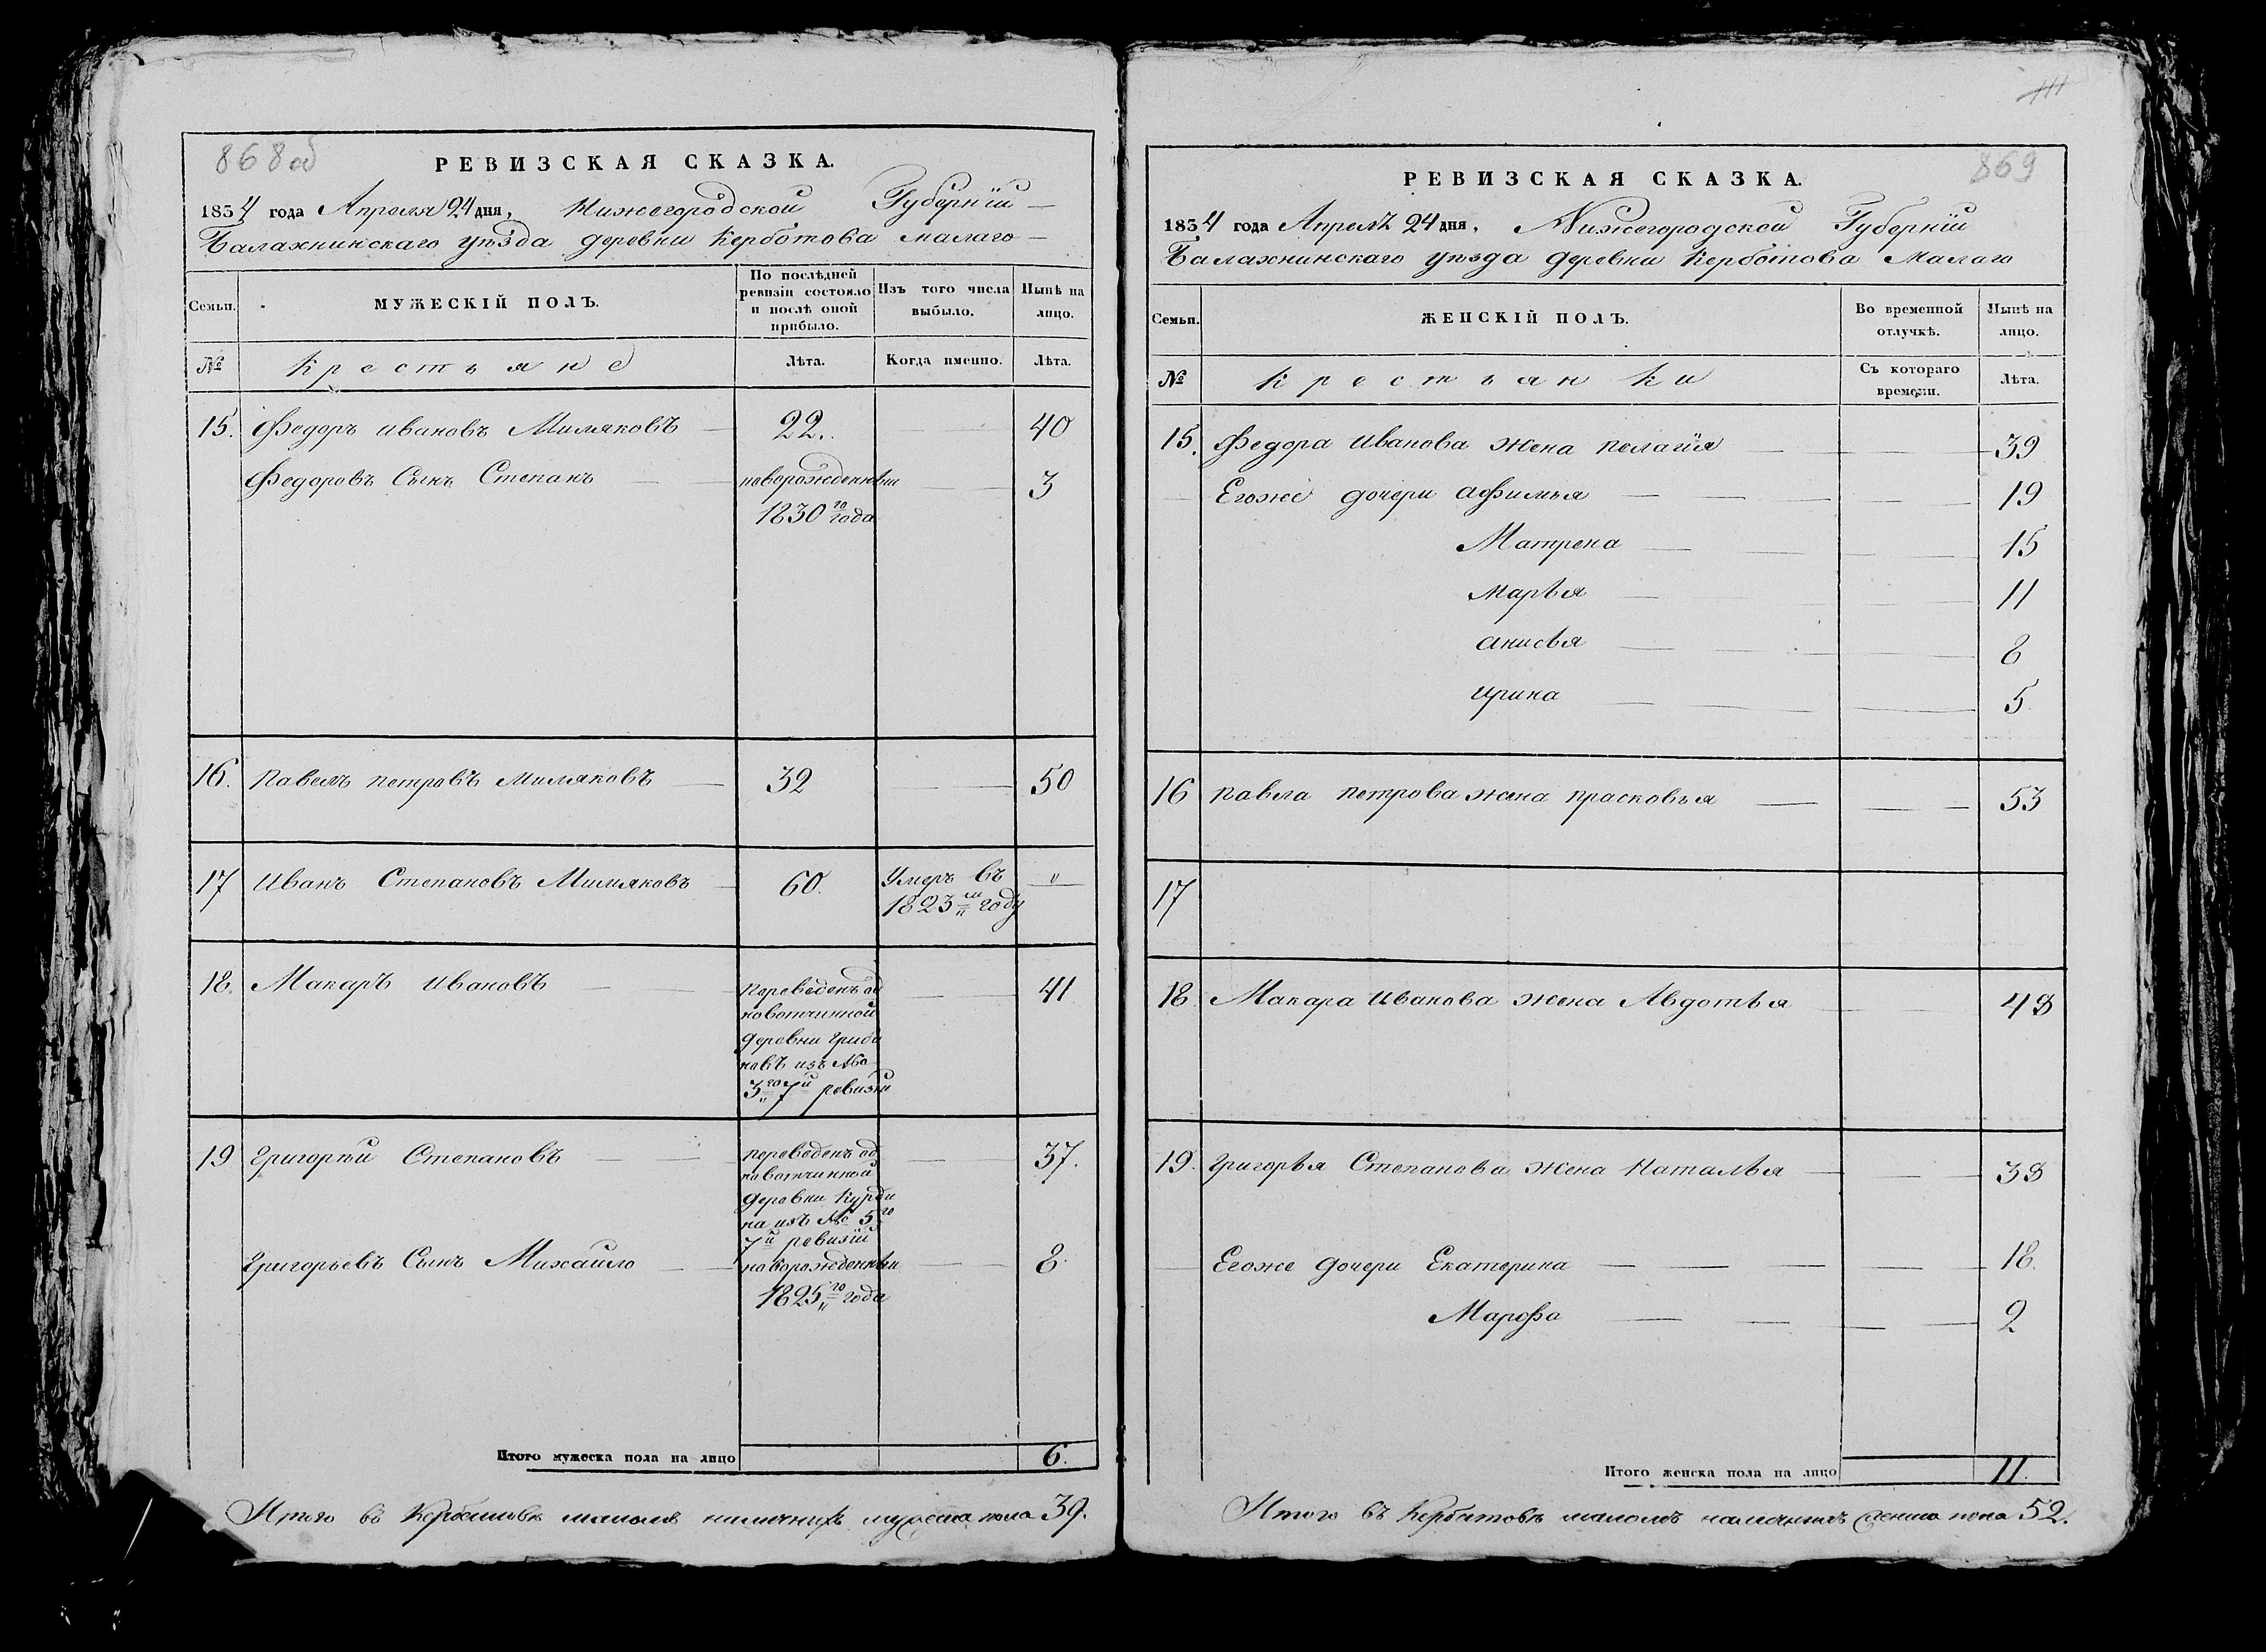 868об
РЕВИЗСКАЯ СКАЗКА.
1834 года Апреля 24 дня, Нижегородской Губерніи
Балахнинскаго уѣзда деревни Керботова малаго
Семьи.
МУЖЕСКІЙ ПОЛЪ.
По послѣдней ревизіи состояло и послѣ оной прибыло.
Изъ того числа выбыло.
Нынѣ на лицо.
№
Крестьяне
Лѣта.
Когда именно.
Лѣта.
15. Федоръ Ивановъ Миляковъ 22. 40
Федоровъ Сынъ Степанъ новорожденный 3
1830го года
16. Павелъ Петровъ Миляковъ 32 50
17 Иванъ Степановъ Миляковъ 60. Умеръ въ "
1823м году
18. Макаръ Ивановъ Переведенъ од 41
новотчинной
деревни Гриде
новъ изъ №
3го 7й ревизіи
19 Григорій Степановъ переведенъ од 37.
новотчинной
деревни Курди
на изъ № 5го
7й ревизіи
Григорьевъ Сынъ Михайло новорожденный 8.
1825го года
Итого мужеска пола на лицо 6.
Итого въ Керботовѣ маломъ наличныхъ мужеска пола 39.
869
РЕВИЗСКАЯ СКАЗКА.
1834 года Апреля 24 дня. Нижегородской Губерніи
Балахнинскаго уѣзда деревни Керботова Малаго
Семьи.
ЖЕНСКІЙ ПОЛЪ.
Во временной отлучкѣ.
Нынѣ на лицо.
№
Крестьянки
Съ котораго времени.
Лѣта.
15. Федора Иванова жена Пелагія 39
Егоже дочери Афимья 19
Матрена 15
Марья 11
Анисья 8
Ирина 5
16 Павла Петрова жена Прасковья 53
17
18. Макара Иванова жена Авдотья 48
19. Григорья Степанова жена Наталья 38
Егоже дочери Екатерина 18.
Марфа 2
Итого женска пола на лицо 11.
Итого въ Керботовѣ маломъ наличныхъ женска пола 52.